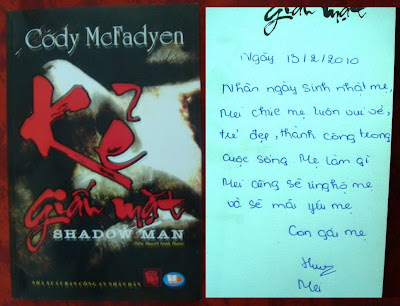 Cody McFadyen
Kẻ
giấu mặt
SHADOW MAN
(Tiểu thuyết hình sự)
NHÀ XUẤT BẢN CÔNG AN NHÂN DÂN
giấu mặt
Ngày 13/2/2010
Nhân ngày sinh nhật mẹ,
Mei chúc mẹ luôn vui vẻ,
trẻ đẹp, thành công trong
cuộc sống Mẹ làm gì
Mei cũng sẽ ủng hộ mẹ
và sẽ mãi yêu mẹ
Con gái mẹ
Mei